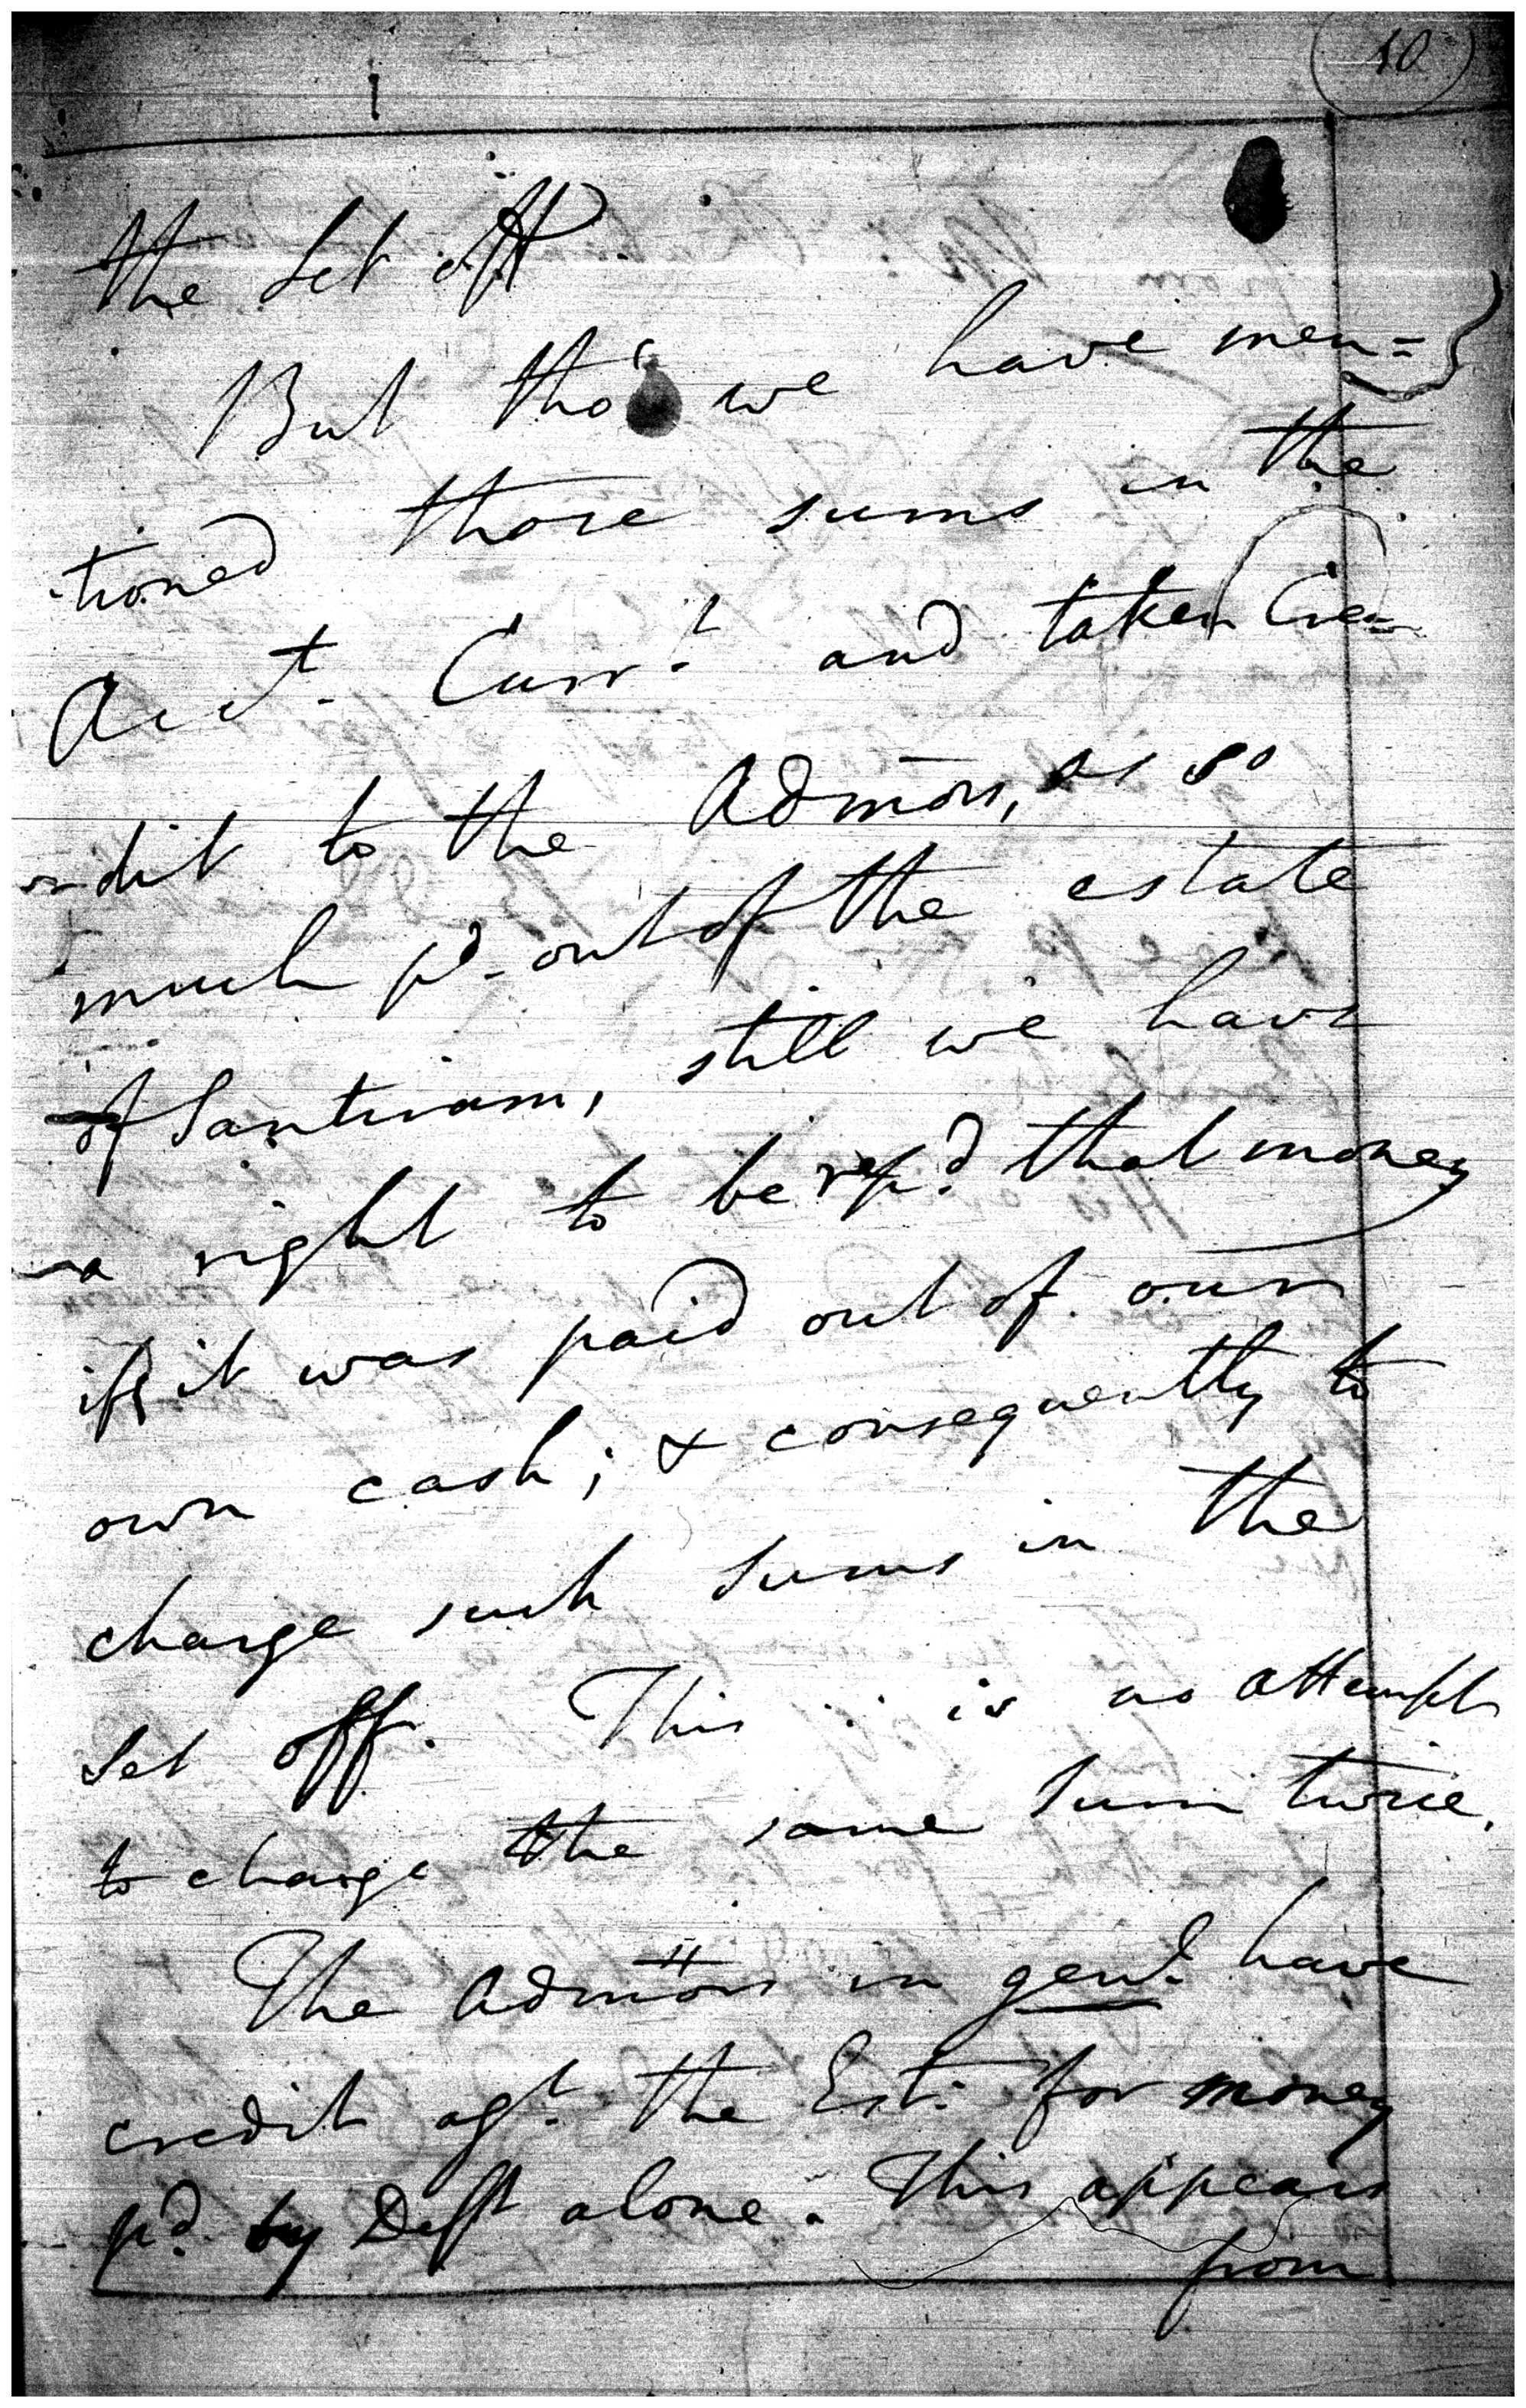 10
the Set off
But tho' we have men=
-tioned those sums in the
Acct. Curr.t and taken Cre=
=dit to the Admors, as so
much pd. out of the estate
of Santuam, still we have
a right to be rep.d that money
if it was paid out of our
own cash; & consequently to
charge such sums in the
Set off. This is no attempt
to charge the same sum twice.
The Admors in gen.l have
credit ag.t the Est: for money
p.d by Deft alone. This appears
from